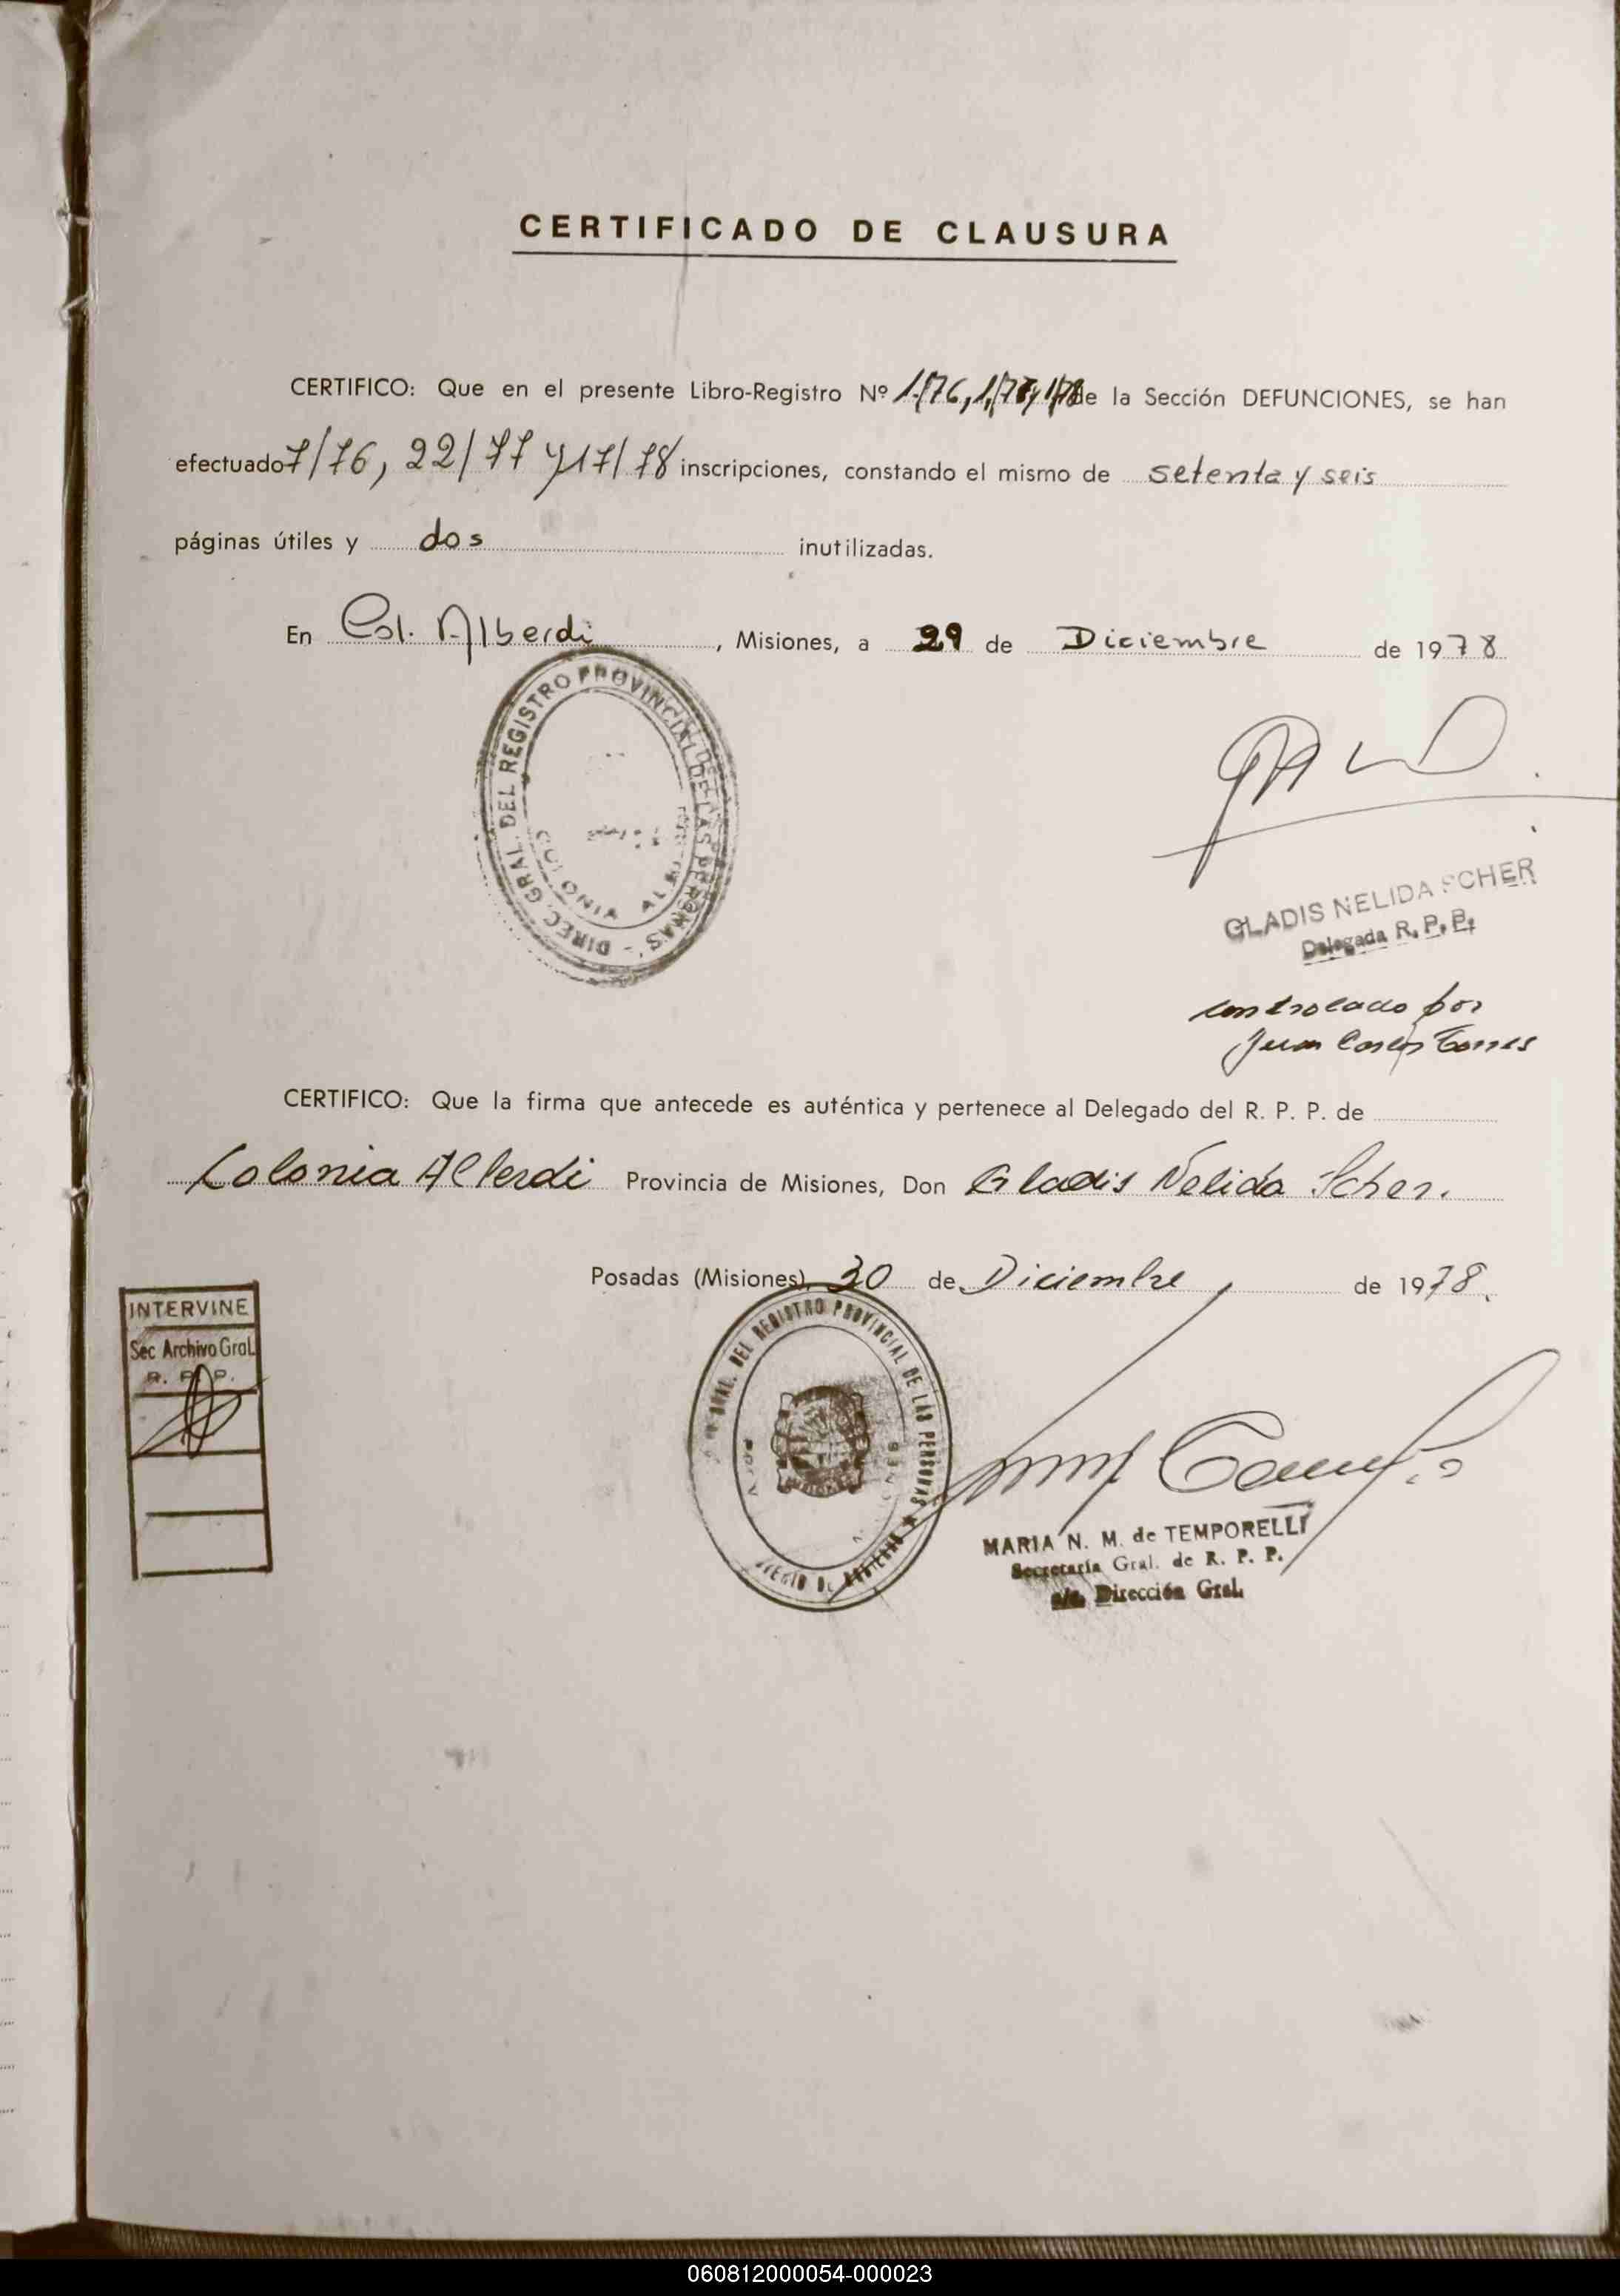 CERTIFICADO DE CLAUSURA
CERTIFICO: Que en el presente Libro-Registro Nº 1/76, 1/77 y 1/78 de la Sección DEFUNCIONES, se han
efectuado 7/76, 22/77 y 17/78 inscripciones, constando el mismo de setenta y seis
páginas útiles y dos inutilizadas.
En Col. Alberdi, Misiones, a 29 de Diciembre de 1978
DIREC. GRAL. DEL REGISTRO PROVINCIAL DE LAS PERSONAS -
COLONIA
GLADIS NELIDA SCHER
Delegada R. P. P.
controlado por
Juan Carlos Torres
CERTIFICO: Que la firma que antecede es auténtica y pertenece al Delegado del R. P. P. de
Colonia Alberdi Provincia de Misiones, Don Gladis Nelida Scher.
Posadas (Misiones), 30 de Diciembre, de 1978.
INTERVINE
Sec Archivo Gral.
R. P. P.
GRAL. DEL REGISTRO PROVINCIAL DE LAS PERSONAS ★
MARIA N. M. de TEMPORELLI
Secretaría Gral. de R. P. P.
a/c. Dirección Gral.
060812000054-000023